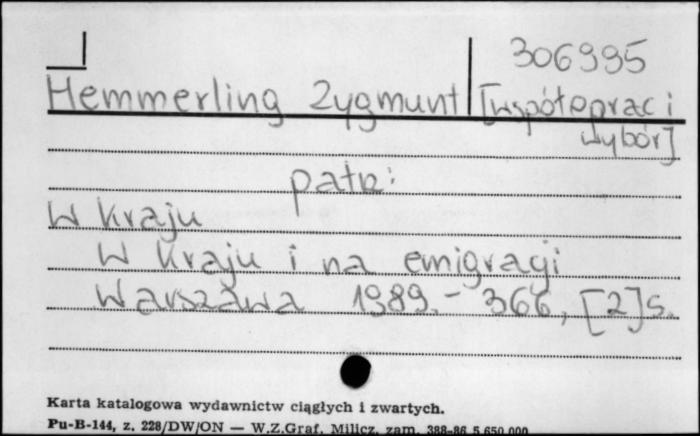 306995
Hemmerling Zygmunt [współoprac i
wybór]
patrz:
W kraju
W kraju i na emigracji
Warszawa 1989.- 366, [2]s.
Karta katalogowa wydawnictw ciągłych i zwartych.
Pu-B-144, z. 228/DW/ON — W.Z.Graf. Milicz, zam. 388-86 5 650 000